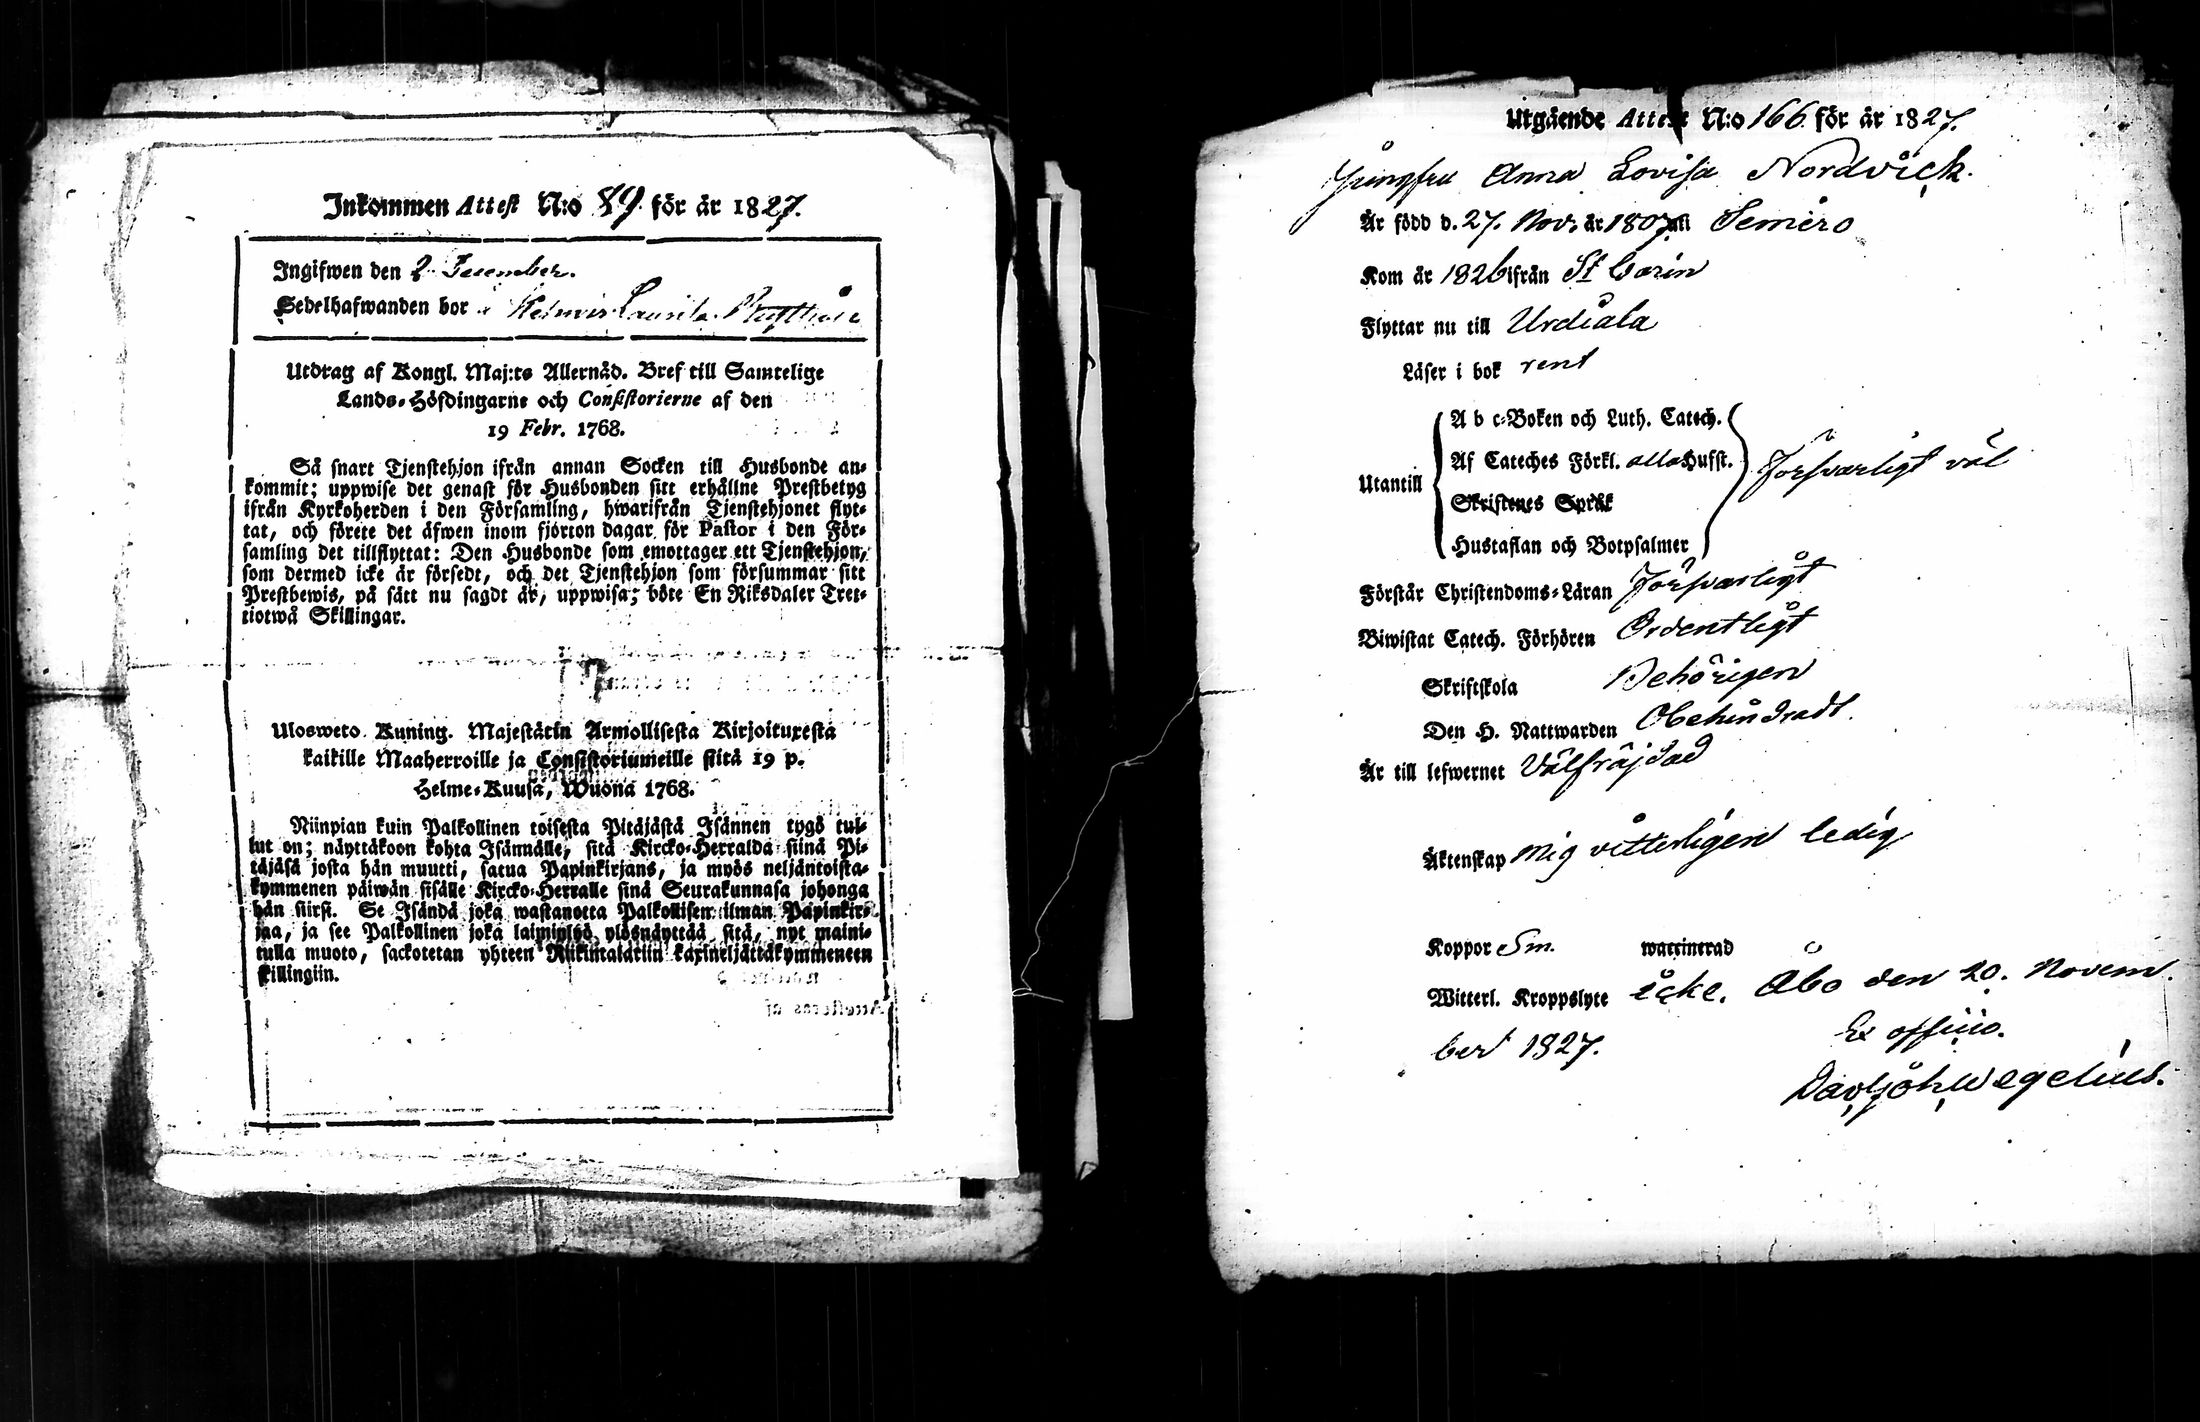 Inkommen Attest N:o 89. för år 1827.
Ingifwen den 2 December.
Sedelhafwanden bor
Utdrag af Kongl. Maj:ts Allernåd. Bref till Samtelige
Lands-Höfdingarne och Consistorierne af den
19 Febr. 1768.
Så snart Tjenstehjon ifrån annan Socken till Husbonde an-
kommit; uppwise det genast för Husbonden sitt erhållne Prestbetyg
ifrån Kyrkoherden i den Församling, hwarifrån Tjenstehjonet flyt-
tat, och förete det äfwen inom fjorton dagar för Pastor i den För-
samling det tillflyttat: Den Husbonde som emottager ett Tjenstehjon,
som dermed icke är försedt, och det Tjenstehjon som försummar sitt
Prestbewis, på sätt nu sagdt är, uppwisa; böte En Riksdaler Tret-
tiotwå Skillingar.
Ulosweto Kuning. Majestätin Armollisesta Kirjoituxesta
kaikille Maaherroille ja Consistoriumeille siitä 19 p.
Helme-Kuusa, Wuonna 1768.
Niinpian kuin Palkollinen toisesta Pitäjästä Isännen tygö tul-
lut on; näyttäkoon kohta Isännälle, sitä Kircko-Herralda siinä Pi-
täjäsä josta hän muutti, saatua Papinkirjans, ja myös neljäntoista-
kymmenen päiwän sisälle Kircko-Herralle siinä Seurakunnasa johonga
hän siirsi. Se Isändä joka wastanotta Palkollisen ilman Papinkir-
jaa, ja see Palkollinen joka laiminlyö ylösnäyttää sitä, nyt maini-
tulla muoto, sackotetan yhteen Riikintaldriin kaxineljättäkymmeneen
killingiin.
Utgående Attest N:o 166 för år 1827.
Jungfru Anna Lovisa Nordvick.
Är född d. 27. Nov. år 1807 uti Semiro
Kom år 1826 ifrån St Carin
Flyttar nu till Urdiala
Läser i bok rent
A b c-Boken och Luth. Catech.
Af Cateches Förkl. alla Hufst.
Utantill Försvarligt väl
Skriftenes Språk
Hustaflan och Botpsalmer
Förstår Christendoms-Läran Försvarligt
Biwistat Catech. Förhören Ordentligt
Skriftskola Behörigen
Den H. Nattwarden Obehindradt.
Är till lefwernet Välfräjdad
Äktenskap Mig vitterligen ledig
Koppor Sm. waccinerad
Witterl. Kroppslyte icke. Åbo den 20. Novem-
ber 1827.
Ex officio.
Dav. Joh. Wegelius.